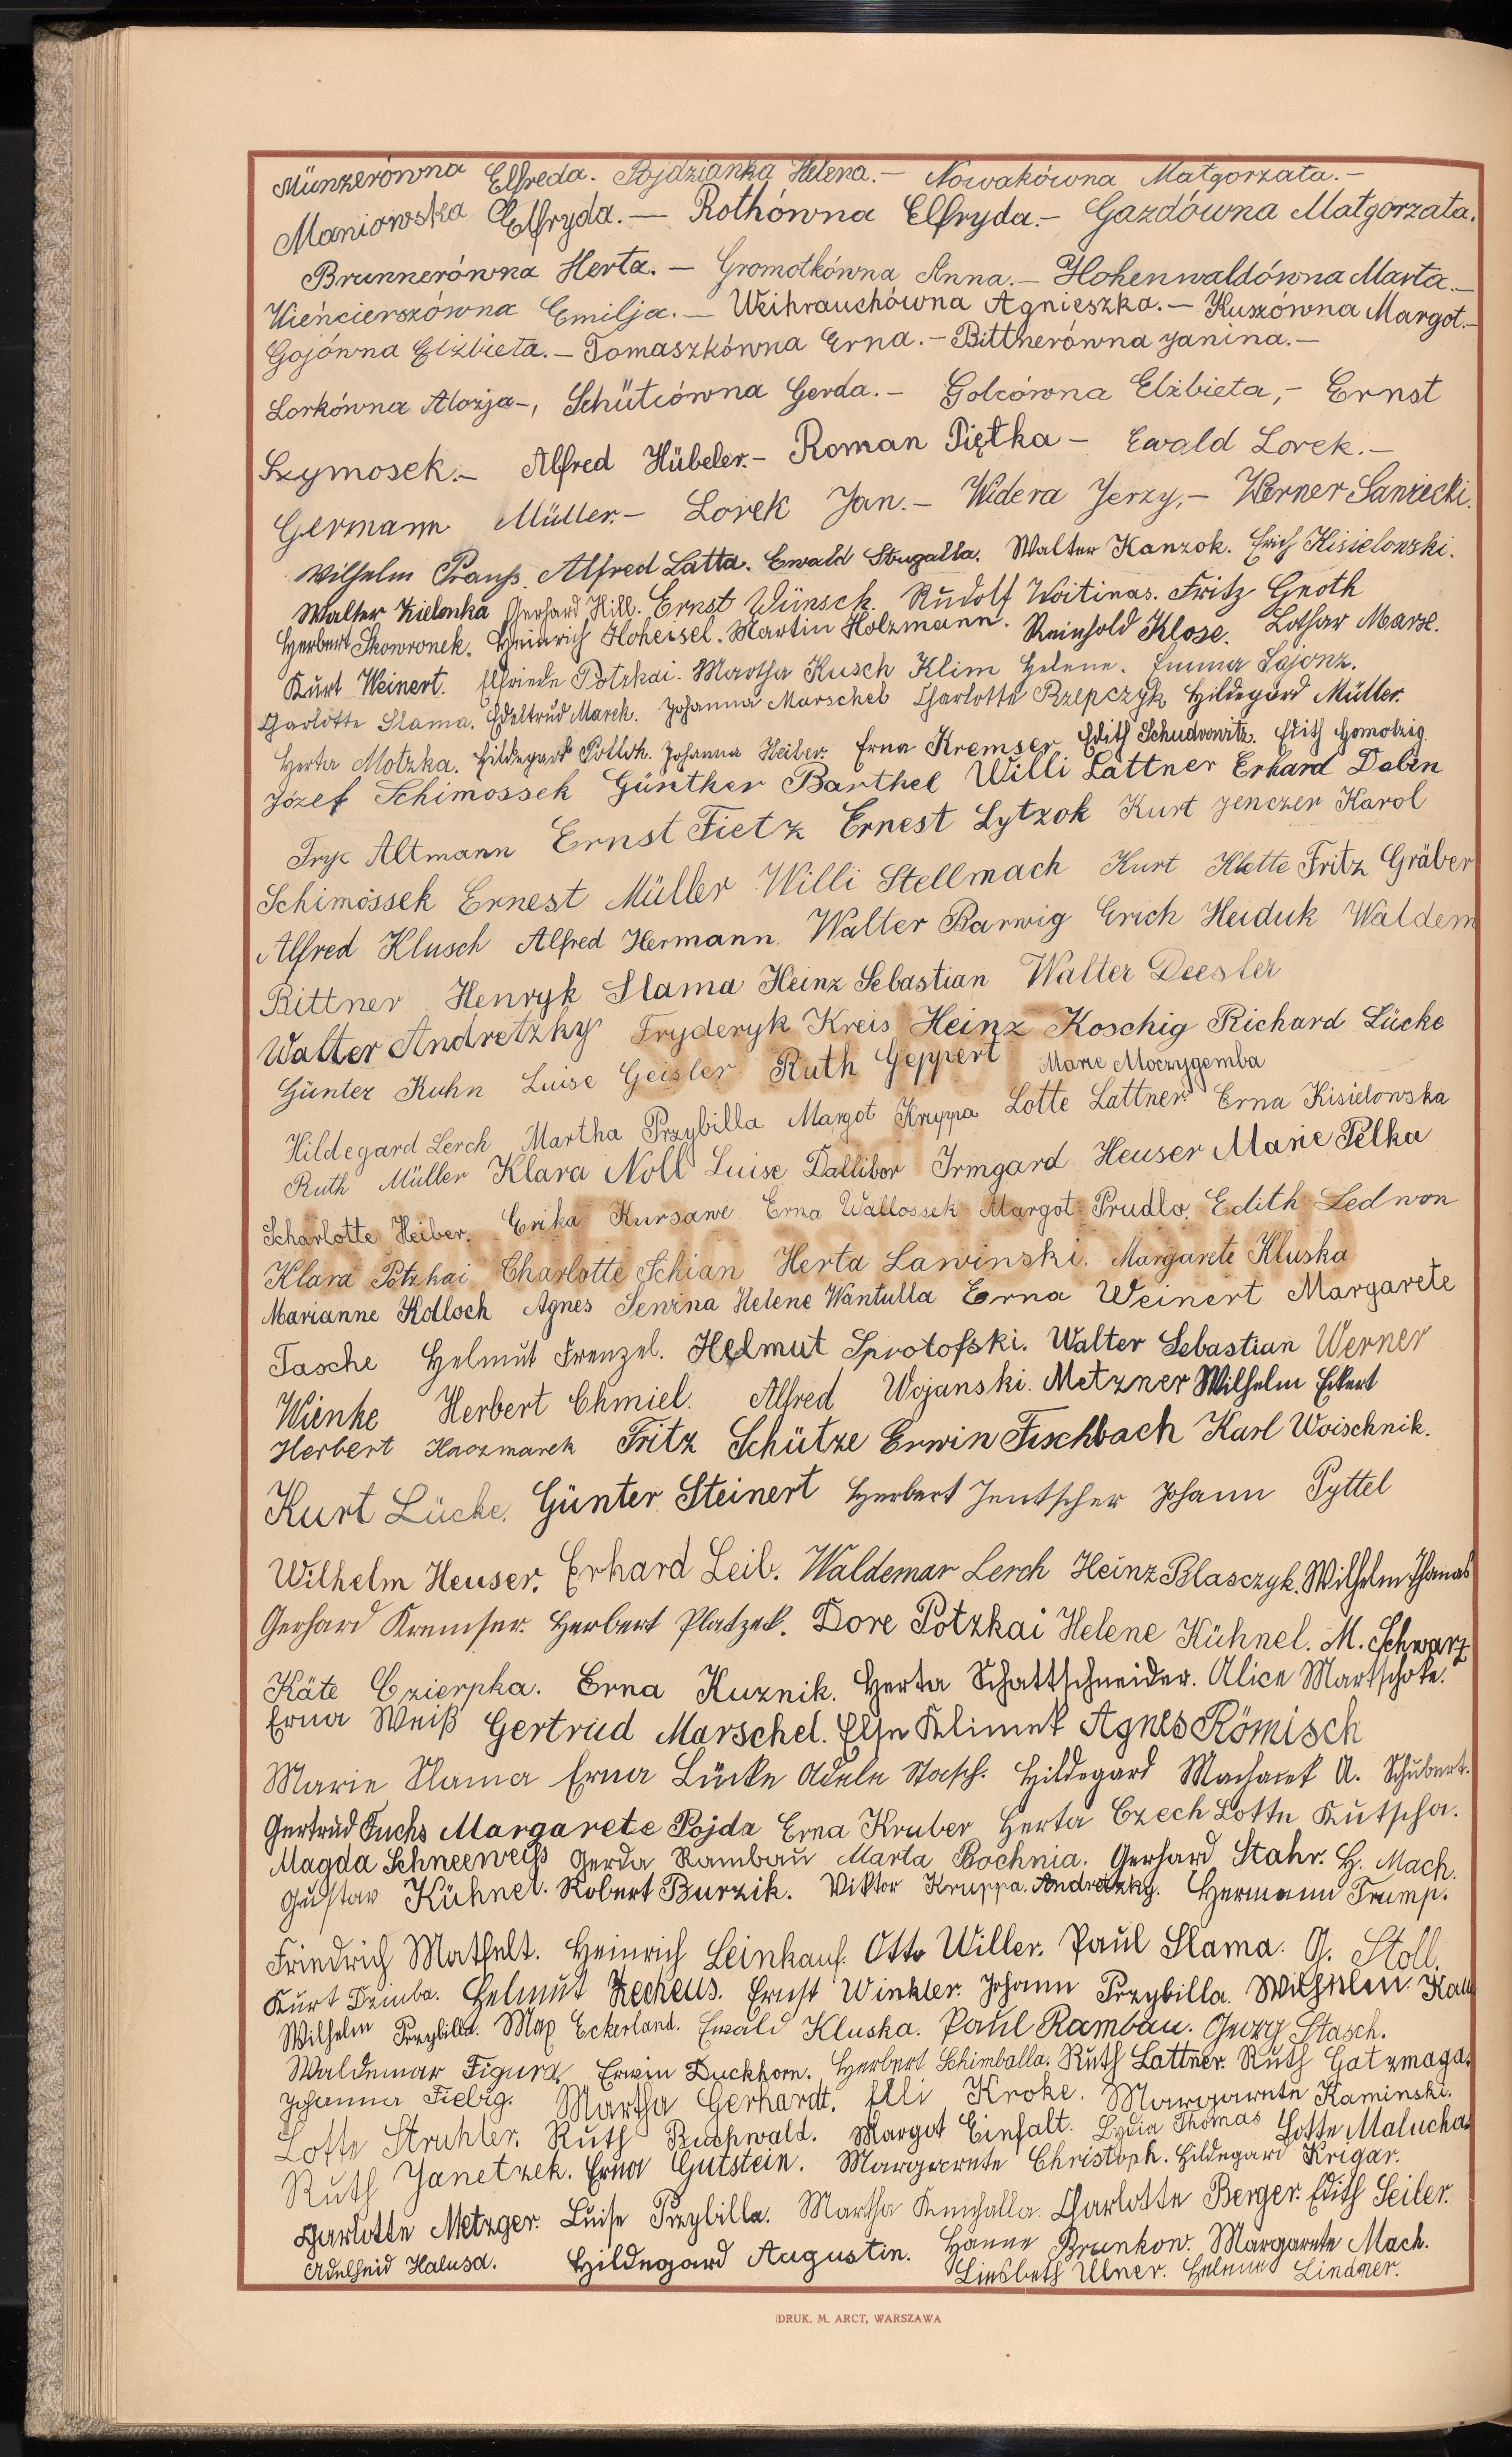 Münzerówna Elfreda. Pojdzianka Helena.— Nowakówna Małgorzata.—
Maniowska Elfryda.— Rothówna Elfryda.— Gazdówna Małgorzata.
Brunnerówna Herta.— Gromotkówna Anna.— Hohenwaldówna Marta.—
Wieńcierszówna Emilja.— Weihrauchówna Agnieszka.— Kuszówna Margot.—
Gojówna Elżbieta.— Tomaszkówna Erna.— Bittnerówna Janina.—
Lorkówna Alozja—, Schütcówna Gerda.— Golcówna Elżbieta,— Ernst
Szymosek.— Alfred Hübeler.— Roman Piętka— Ewald Lorek.—
Germann Müller.— Lorek Jan.— Widera Jerzy,— Werner
Wilhelm Alfred Latta. Ewald Strugalla. Walter Kanzok. Erich Kisielowski.
Walter Kielonka Gerhard Hill. Ernst Wünsch. Rudolf Woitinas. Fritz Gnoth
Herbert Skowronek. Heinrich Hoheisel. Martin Holzmann. Reinhold Klose. Lothar
Kurt Weinert. Elfriede Potzkai. Martha Kusch Klim Helene. Emma Sajonz.
Charlotte Slama. Edeltrud Marek. Johanna Marschel Charlotte Rzepczyk Hildegard Müller.
Herta Motzka. Hildegard Pollok. Johanna Heiber. Erna Kremser Edith Edith Gomolzig.
Józef Schimossek Günther Barthel Willi Lattner Erhard Dalin
Fryc Altmann Ernst Fietz Ernest Lytzok Kurt Jenczen Karol
Schimossek Ernest Müller Willi Stellmach Kurt Klette Fritz Gräber
Alfred Klusch Alfred Hermann. Walter Barwig Erich Heiduk Waldem
Bittner Henryk Slama Heinz Sebastian Walter Deesler
Walter Andretzky Fryderyk Kreis Heinz Koschig Richard Lücke
Günter Kuhn Luise Geisler Ruth Geppert Marie Moczygemba
Hildegard Lerch Martha Przybilla Margot Kruppa Lotte Lattner Erna Kisielowska
Ruth Müller Klara Noll Luise Dallibor Irmgard Heuser Marie Pelka
Scharlotte Heiber. Erika Kursawe Erna Wallossek Margot Prudlo. Edith Ledwon
Klara Potzkai Charlotte Schian Herta Lawinski. Margarete Kluska
Marianne Kolloch Agnes Sewina Helene Wantulla Erna Weinert Margarete
Tasche Helmut Frenzel. Helmut Sprotofski. Walter Sebastian Werner
Wienke Herbert Chmiel. Alfred Wojanski. Metzner Wilhelm Eckert
Herbert Kaczmarek Fritz Schütze Erwin Fischbach Karl Woischnik.
Kurt Lücke. Günter Steinert Herbert Jentscher Johann Pyttel
Wilhelm Heuser. Erhard Leib. Waldemar Lerch Heinz Blasczyk. Wilhelm Thomas
Gerhard Kremser. Herbert Platzek. Dore Potzkai Helene Kühnel. M. Schwarz
Käte Czierpka. Erna Kuznik. Herta Schattschneider. Alice Martschoke.
Erna Weiß Gertrud Marschel. Else Klimek Agnes Römisch
Marie Slama Erna Lücke Adele Stasch. Hildegard Machanek A. Schubert.
Gertrud Fuchs Margarete Pojda Erna Kruber Herta Czech Lotte Kutscha.
Magda Schneeweiß Gerda Rambau Marta Bochnia. Gerhard Stahr. H. Mach.
Gustav Kühnel. Robert Burzik. Viktor Kruppa. Andretzky. Hermann Trump.
Friedrich Mathelt. Heinrich Leinkauf. Otto Willer. Paul Slama. G. Stoll.
Kurt Dzimba. Helmut Zecheus. Ernst Winkler. Johann Przybilla. Wilhelm
Wilhelm Przybilla. Max Eckerland. Ewald Kluska. Paul Rambau. Georg Stasch.
Waldemar Figura. Erwin Duckhorn. Herbert Schimballa. Ruth Lattner. Ruth Gatzmaga.
Johanna Fiebig. Martha Gerhardt. Elli Kroke. Margarete Kaminski.
Lotte Struhler. Ruth Buchwald. Margot Einfalt. Lydia Thomas Lotte Malucha.
Ruth Janetzek. Erna Gutstein. Margarete Christoph. Hildegard Krigar.
Charlotte Metzger. Luise Przybilla. Martha Charlotte Berger. Edith Seiler.
Adelheid Halusa. Hildegard Augustin. Hanne Brunkow. Margarete Mach.
Liesbeth Ulner. Helene Lindner.
DRUK. M. ARCT, WARSZAWA